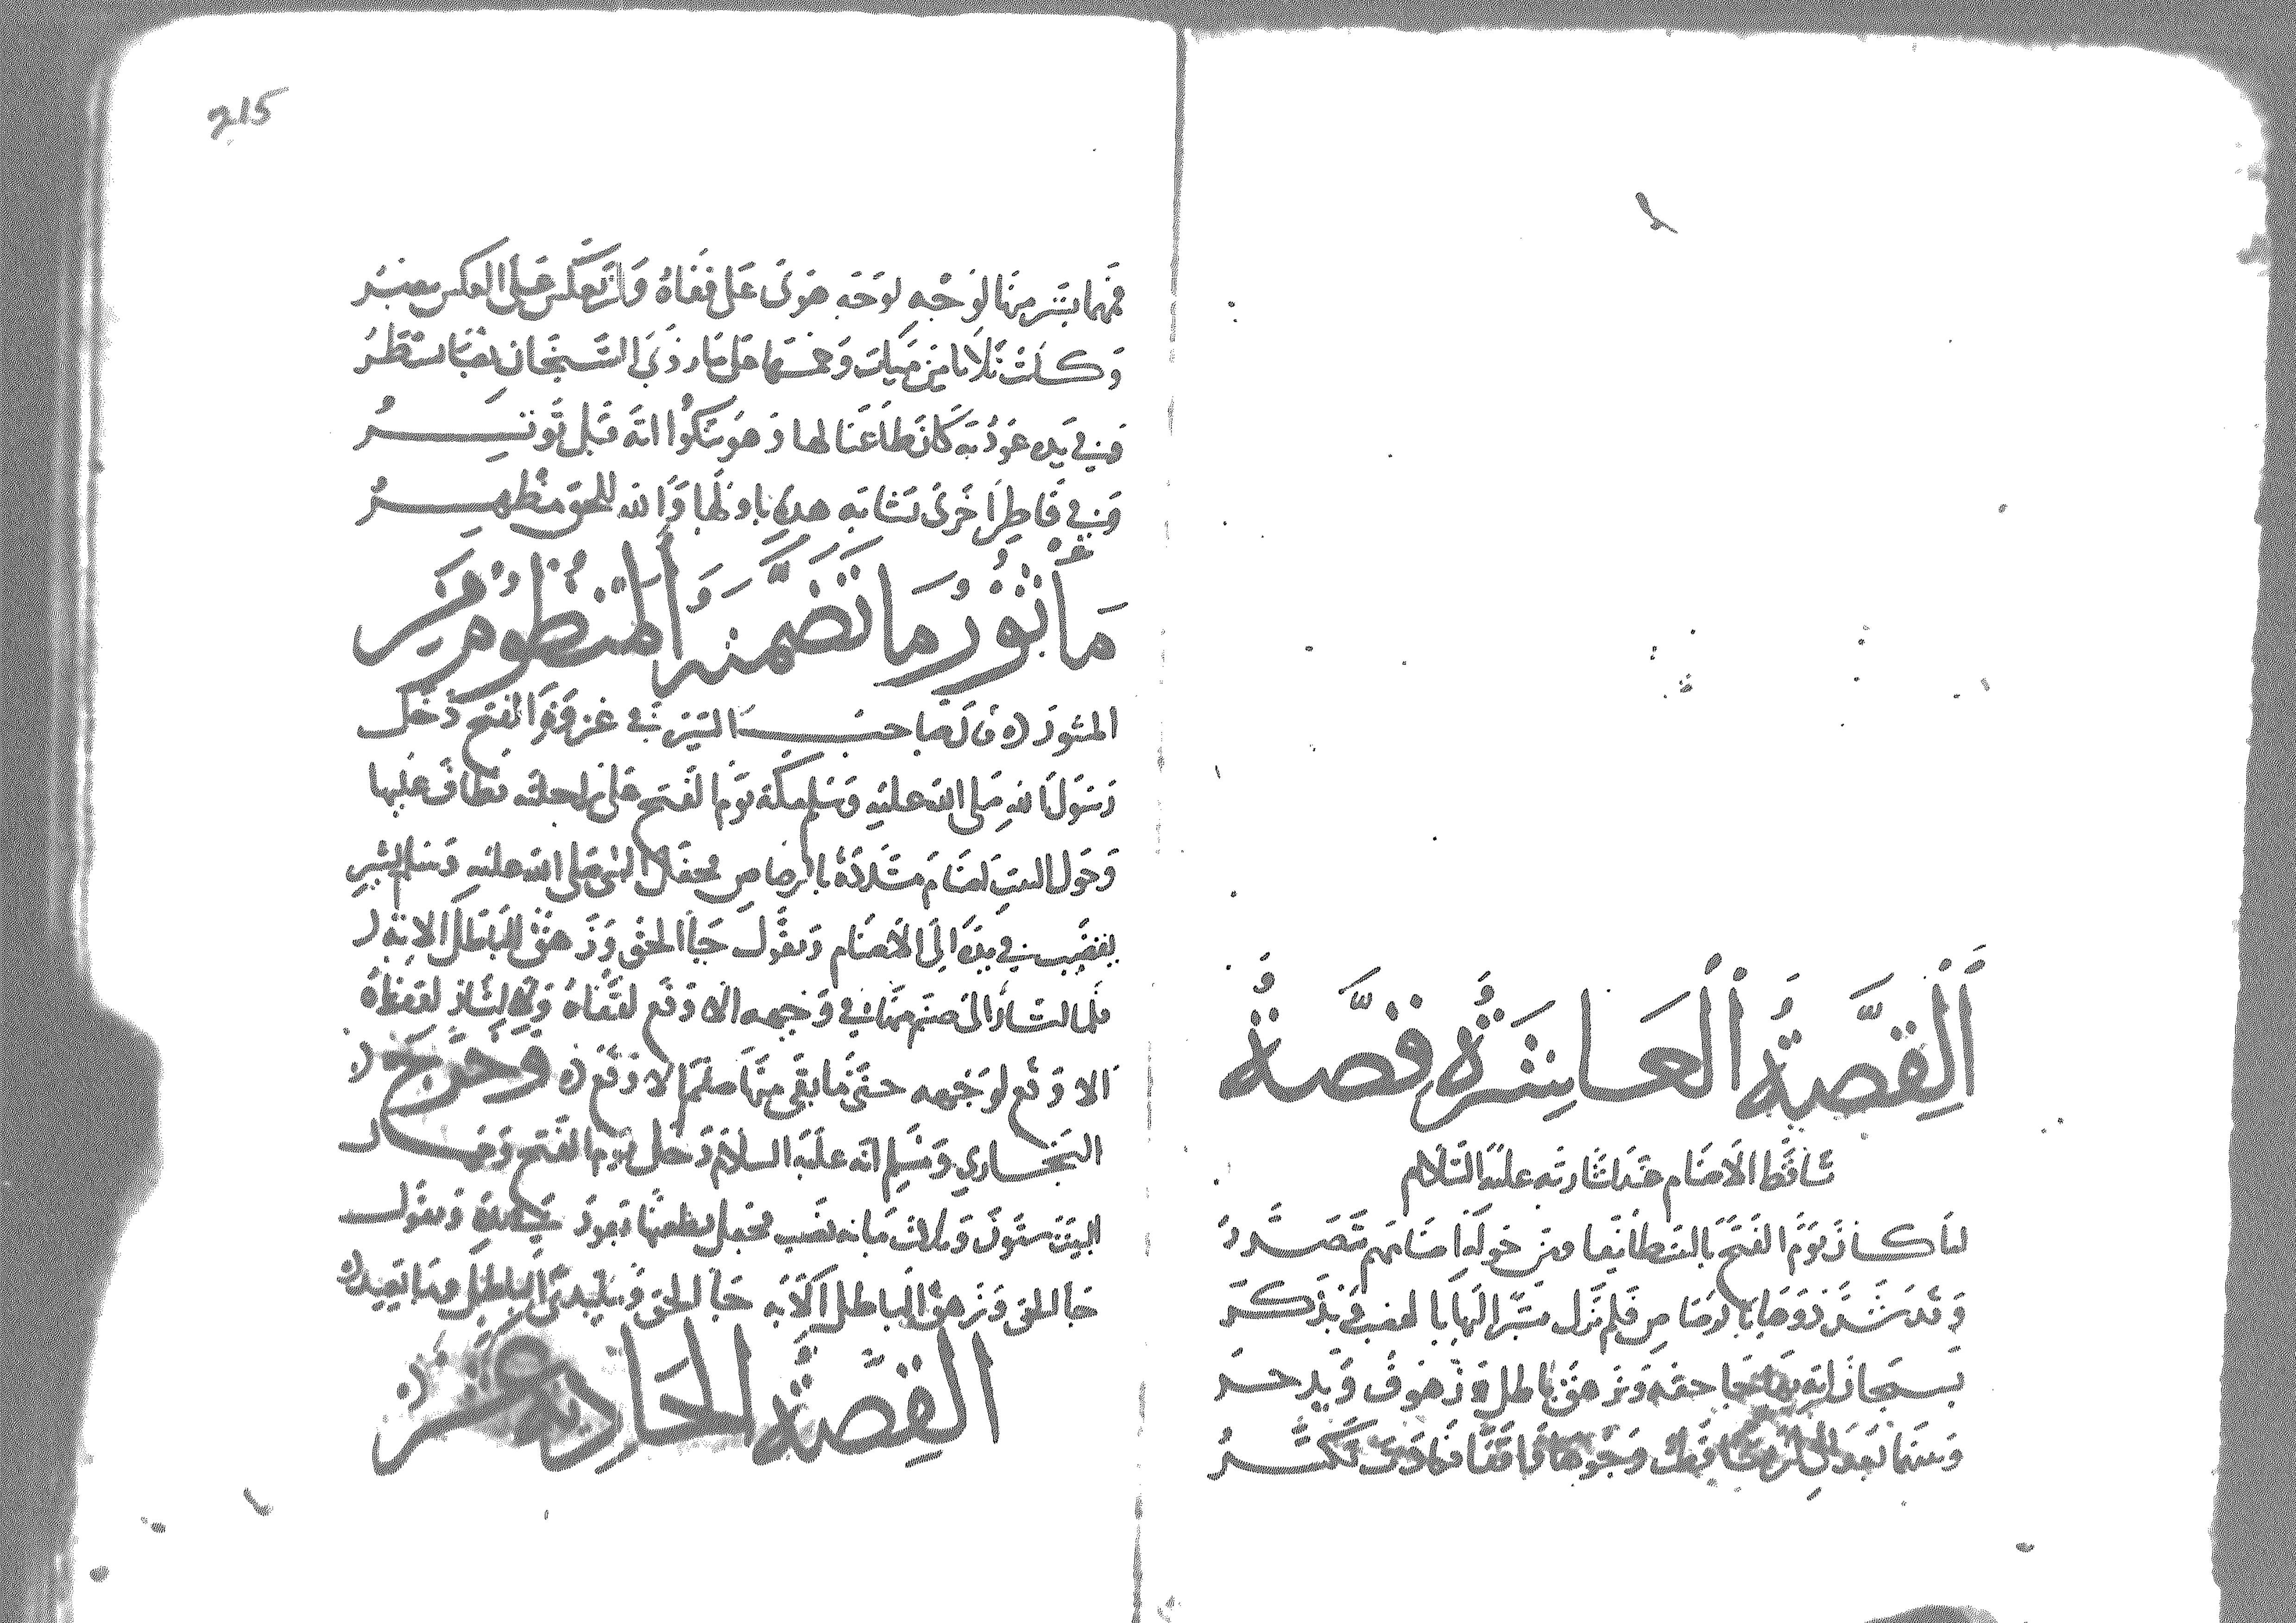 اَلْقِصَّةُ الْعَاشِرَةُ قِصَّةُ
تَسَاقُط الاَصنَام عَند اشَارته عليه السّلام
لمَا كان يَوْم الفَتح بالبَيت طائفا ومن حَوله اصنامهم تتصَدر
وَقد شَدّ ذووها بالرصاص فلم تزل مشيرا لها بالقضيب يذكر
جا حقه وَزهق باطله زهوق وَيدحر
وجُوهها
215
فمهما يشر منها لوَجْهٍ لوَجْه هوَى عَلى قفَاهُ وَان يَعكس عَلى العكس يعبُر
وَكانت ثلاثا من مييات وَخمسها عَلى مَا رَوَى الشيخان
وَفي يَده عوْد به كان طاعنا لها وهوَ يتلوا انه قبل يوترُ
وفي فاطر اخرَى تشابه هذه باولها وَالله للحق مظهرُ
مَأْثُورُ مَا تَضَمَّنَهُ الْمَنْظُومُ مِنَ
المنثور قال صاحب السّير في غزوة الفَتح دخل
رَسُول الله صَلى الله عليه وَسَلم مكة يَوْم الفَتح عَلى راحلته فطاف عليها
وَحَول البيت اصنام مشددَة بالرصاص فجعَل النبى صَلى الله عليه وَسَلم يشير
بقضيب في يَده اِلَى الاَصنَام وَيقُول جَا الحَق وَزَهقَ البَاطل الاية
فما اشار الى صَنم منها في وَجهه الا وَقع لقفَاهُ وَلا اشار لقفَاهُ
الا وَقع لوَجْهه حتى مَا بقى منها صَنم الا وَقع وَخرّجَ
البخاري وَمسلم انه عليه السلام دَخل يَوْم الفَتح وَحول
البيت ستون وَثلاث مَائة نصُب فجعل يطعنها بعود في يده وَيقول
جَا الحق وَزهق الباطل الاية جَا الحق وَما يبدئ الباطل وما يعيد
القِصَّةُ الْحَادِيةَ عَشر